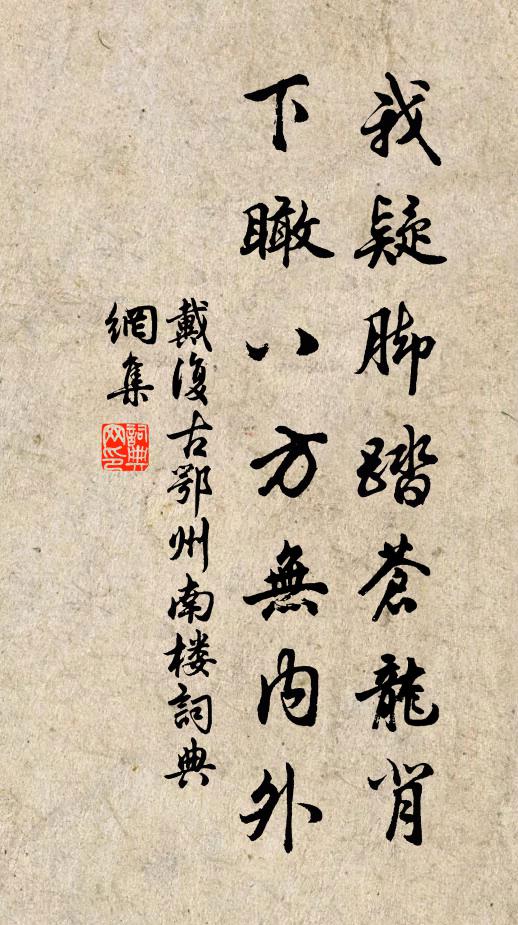 我疑脚踏蒼龍背
下瞰八方無内外
戴復古鄂州南楼詞典
網集
詞典
网印